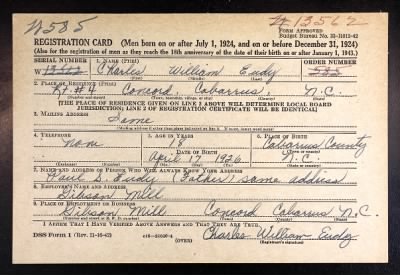 N585 N13562
Form Approved
Budget Bureau No. 33-R012-42
REGISTRATION CARD (Men born on or after July 1, 1924, and on or before December 31, 1924)
(Also for the registration of men as they reach the 18th anniversary of the date of their birth on or after January 1, 1943.)
SERIAL NUMBER 1. Name (Print) ORDER NUMBER
W Charles William Eudy
2. Place of Residence (Print)
Rt. #4 Concord, Cabarrus, N.C.
[THE PLACE OF RESIDENCE GIVEN ON LINE 2 ABOVE WILL DETERMINE LOCAL BOARD
JURISDICTION; LINE 2 OF REGISTRATION CERTIFICATE WILL BE IDENTICAL]
3. Mailing Address
Same
4. Telephone 5. Age in Years 6. Place of Birth
none 18 Cabarrus County
Date of Birth
April 17 1926 N.C.
7. Name and Address of Person Who Will Always Know Your Address
Paul S. Eudy (Father) same address
8. Employer's Name and Address
Gibson Mill
9. Place of Employment or Business
Gibson Mill Concord Cabarrus N.C.
I Affirm That I Have Verified Above Answers and That They Are True.
DSS Form 1 (Rev. 11-16-42) (OVER) Charles William Eudy
(Registrant's signature)